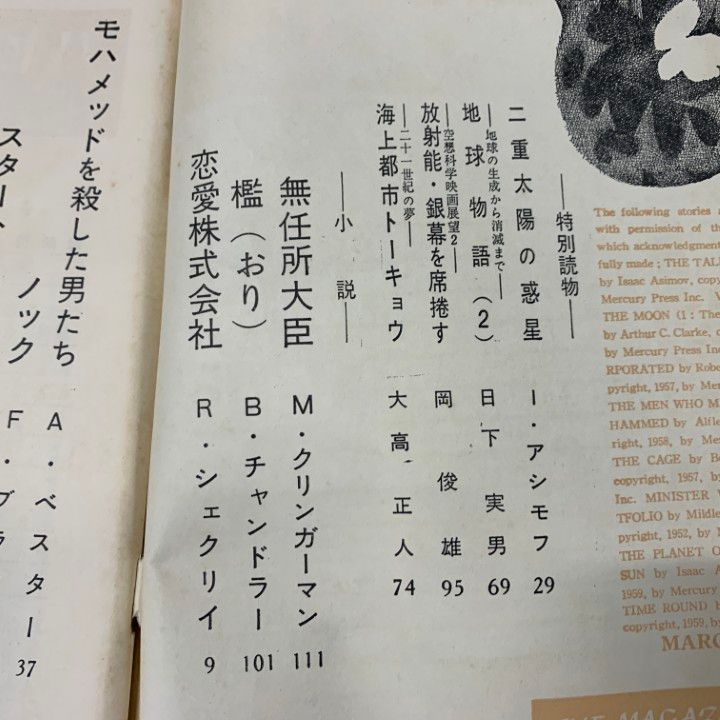 ―特別読物―
二重太陽の惑星 I・アシモフ 29
―地球の生成から消滅まで―
地球物語(2) 日下実男 69
―空想科学映画展望2―
放射能・銀幕を席捲す 岡俊雄 95
―二十一世紀の夢―
海上都市トーキョウ 大高正人 74
―小説―
無任所大臣 M・クリンガーマン 111
檻(おり) B・チャンドラー 101
恋愛株式会社 R・シェクリイ 9
モハメッドを殺した男たち A・ベスター 37
ノック F・ブラ
スター、
The following stories
with permission of th
which acknowledgment
fully made; THE TAL
by Isaac Asimov, copy
Mercury Press Inc.
THE MOON (1: The
by Arthur C. Clarke,
by Mercury Press Inc
RPORATED by Robe
pyright, 1957, by Mer
THE MEN WHO M
HAMMED by Alfle
right, 1958, by Me
THE CAGE by Be
copyright, 1957, b
Inc. MINISTER
TFOLIO by Mildle
pyright, 1952, by
THE PLANET O
SUN by Isaac A
1959, by Mercury
TIME ROUND b
copyright, 1959, b
MARC